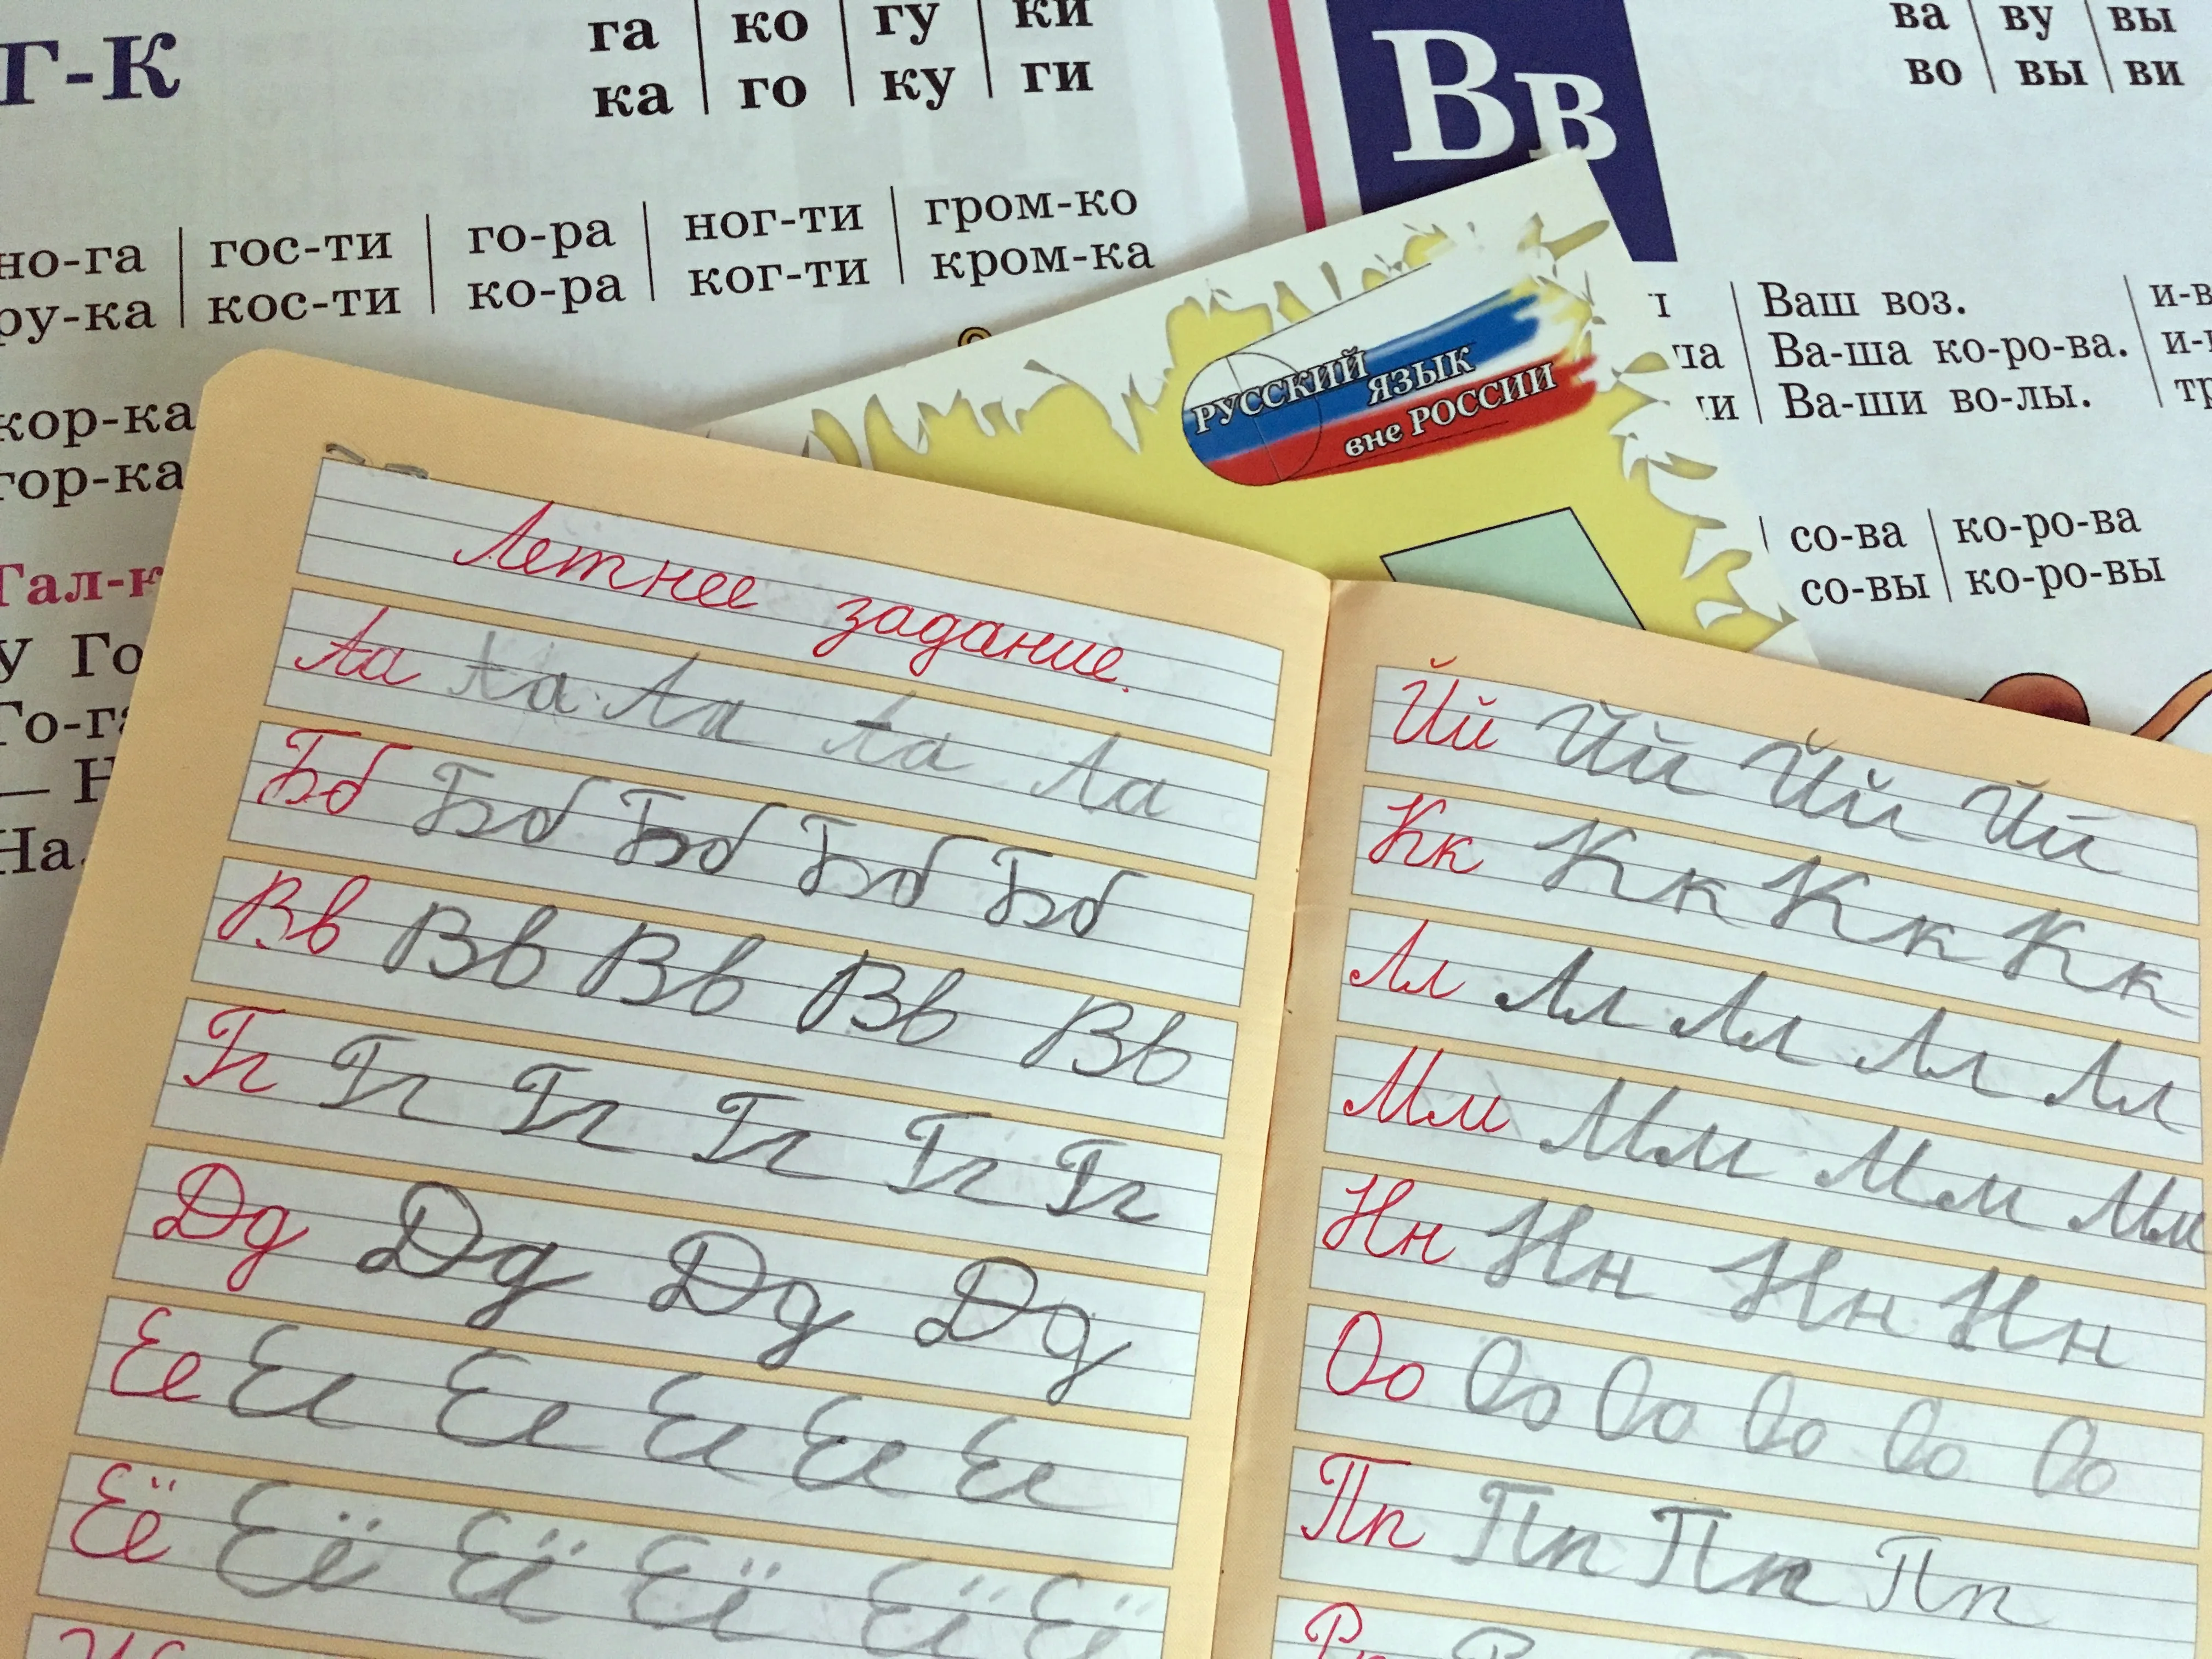 Г-К
га | ко | гу | ки
ка | го | ку | ги
но-га | гос-ти | го-ра | ног-ти | гром-ко
ру-ка | кос-ти | ко-ра | ког-ти | кром-ка
кор-ка
гор-ка
У
Вв
ва | ву | вы
во | вы | ви
Ваш воз.
Ва-ша ко-ро-ва.
Ва-ши во-лы.
со-ва | ко-ро-ва
со-вы | ко-ро-вы
РУССКИЙ
ЯЗЫК
вне РОССИИ
Летнее задание.
Аа Аа Аа Аа Аа
Бб Бб Бб Бб Бб
Вв Вв Вв Вв Вв
Гг Гг Гг Гг Гг Гг
Дд Дд Дд Дд
Ее Ее Ее Ее Ее Ее
Её Её Её Её Её Её
Йй Йй Йй Йй
Кк Кк Кк Кк
Лл Лл Лл Лл Лл
Мм Мм Мм Мм
Нн Нн Нн Нн
Оо Оо Оо Оо Оо Оо
Пп Пп Пп Пп